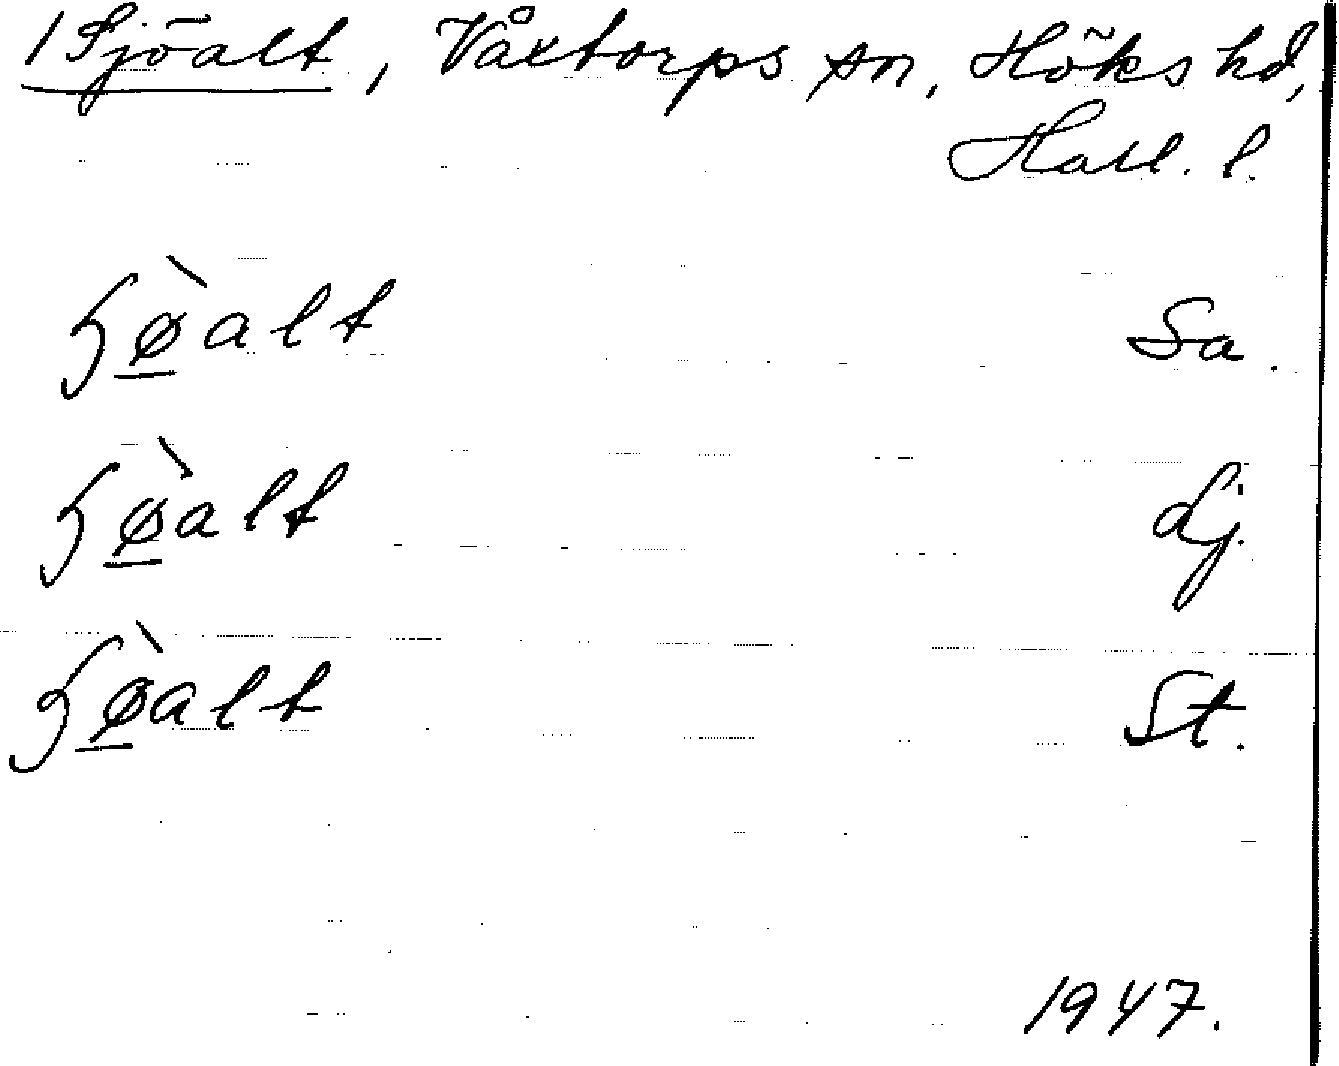 1 Sjöalt, Våxtorps sn, Höks hd,
Hall. l.
ɧø̱̀alt Sa.
ɧø̱̀alt Lj.
ɧø̱̀alt St.
1947.